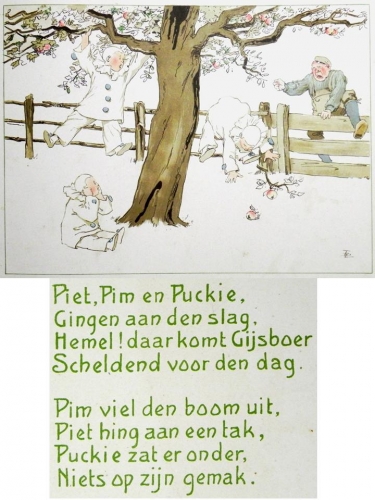 Piet, Pim en Puckie,
Gingen aan den slag,
Hemel! daar komt Gijsboer
Scheldend voor den dag.
Pim viel den boom uit,
Piet hing aan een tak,
Puckie zat er onder,
Niets op zijn gemak.